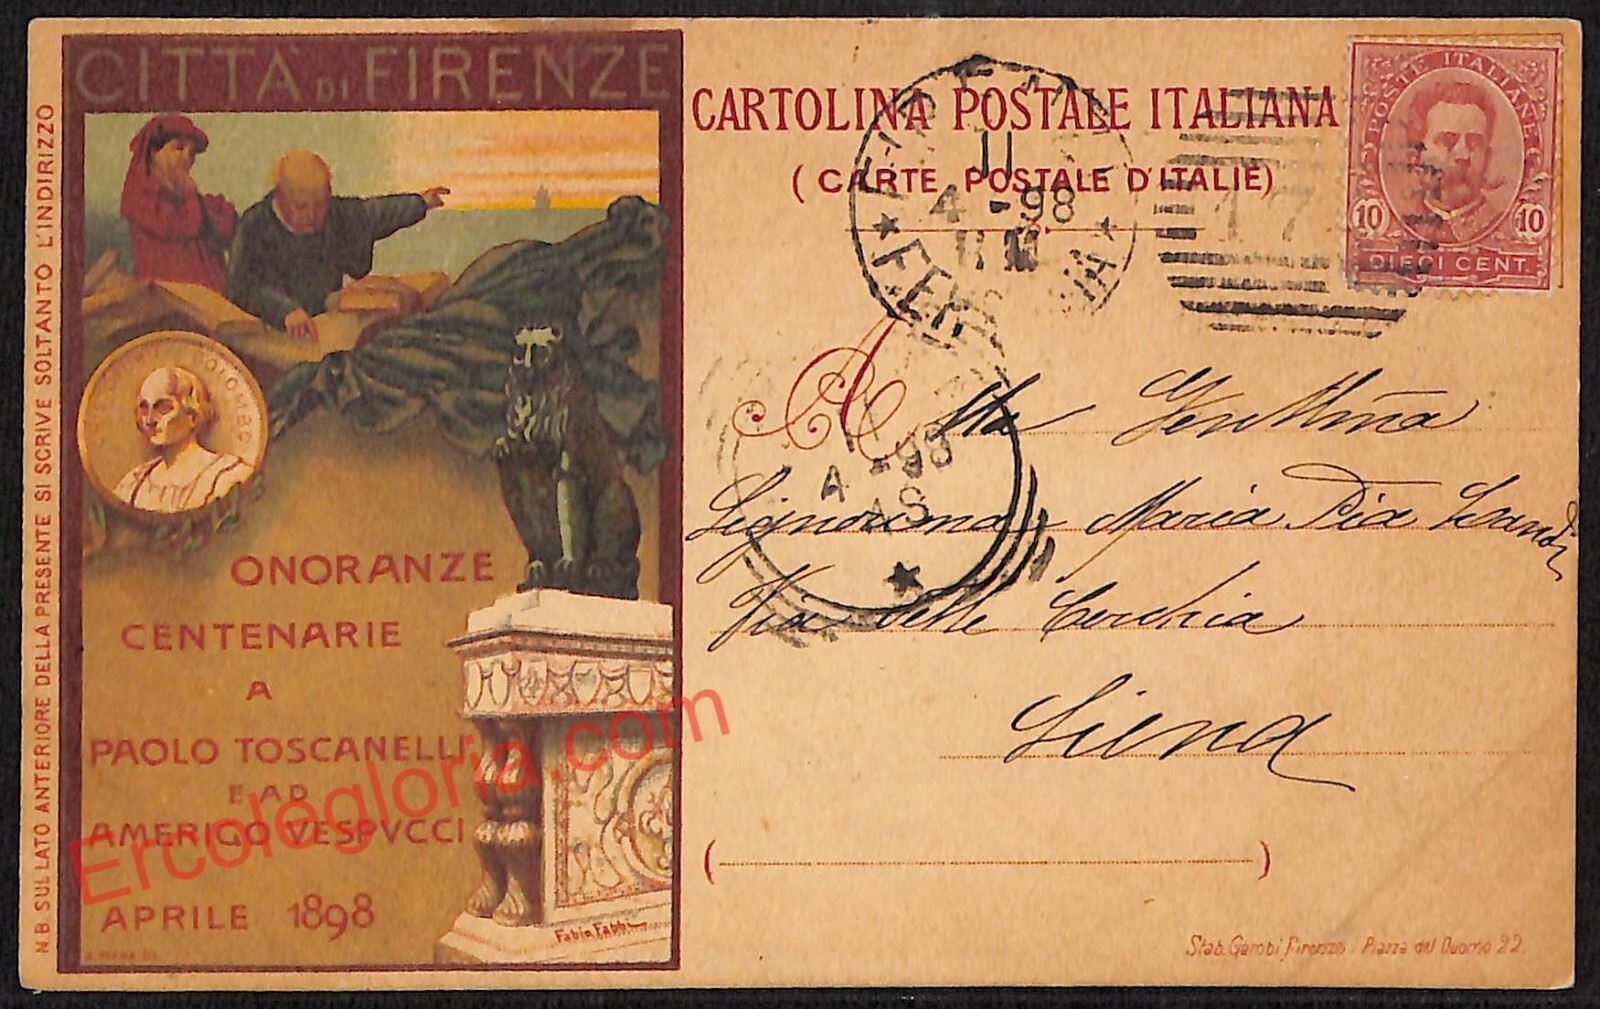 CITTÀ DI FIRENZE
N.B. SUL LATO ANTERIORE DELLA PRESENTE SI SCRIVE SOLTANTO L'INDIRIZZO
COLOMBO
ONORANZE
CENTENARIE
A
PAOLO TOSCANELLI
E AD
AMERIGO VESPVCCI
APRILE 1898
Fabio Fabbi
Ercolegloria.com
CARTOLINA POSTALE ITALIANA
(CARTE POSTALE D'ITALIE)
POSTE ITALIANE
10 10
DIECI CENT.
FIRENZE
11
4 -98
FERROVIA
17
11
4 -98
A lla Gentilma
Signorina Maria Pia Landi
Via delle Cerchia
Siena
( )
Stab. Gambi Firenze. Piazza del Duomo 22.